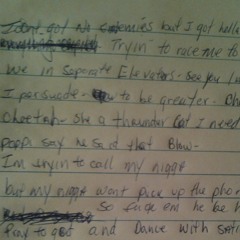 I dont got no enemies but I got hella
Tryin' to race me to
We in separate Elevators - See you
I persuade - to be greater - Ch
cheetah - She a thunder cat I need
poppa say he said that Blow -
Im tryin to call my nigga
but my nigga wont pick up the pho
So fuck em he be h
Pray to god and Dance with